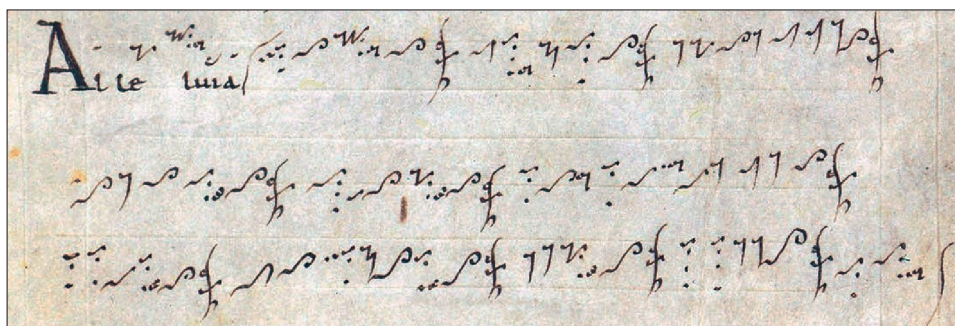 Alle luia